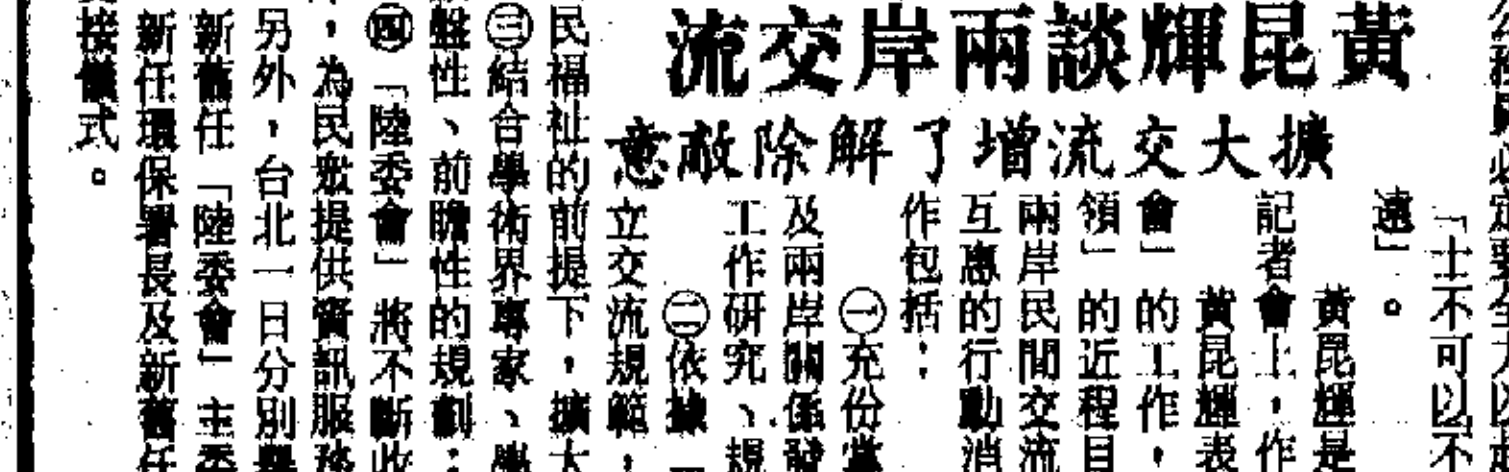 「士不可以不
遠」。
黃昆輝談兩岸交流
擴大交流增了解除敵意
黃昆輝是
記者會上，作
黃昆輝表
會」的工作，
領」的近程目
兩岸民間交流
互惠的行動消
作包括：
㊀充份掌
及兩岸關係發
工作研究、規
㊁依據「
立交流規範，
民福祉的前提下，擴大
㊂結合學術界專家、學
盤性、前瞻性的規劃；
㊃「陸委會」將不斷收
，為民眾提供資訊服務
另外，台北一日分別舉
新舊任「陸委會」主委
新任環保署長及新舊任
接儀式。